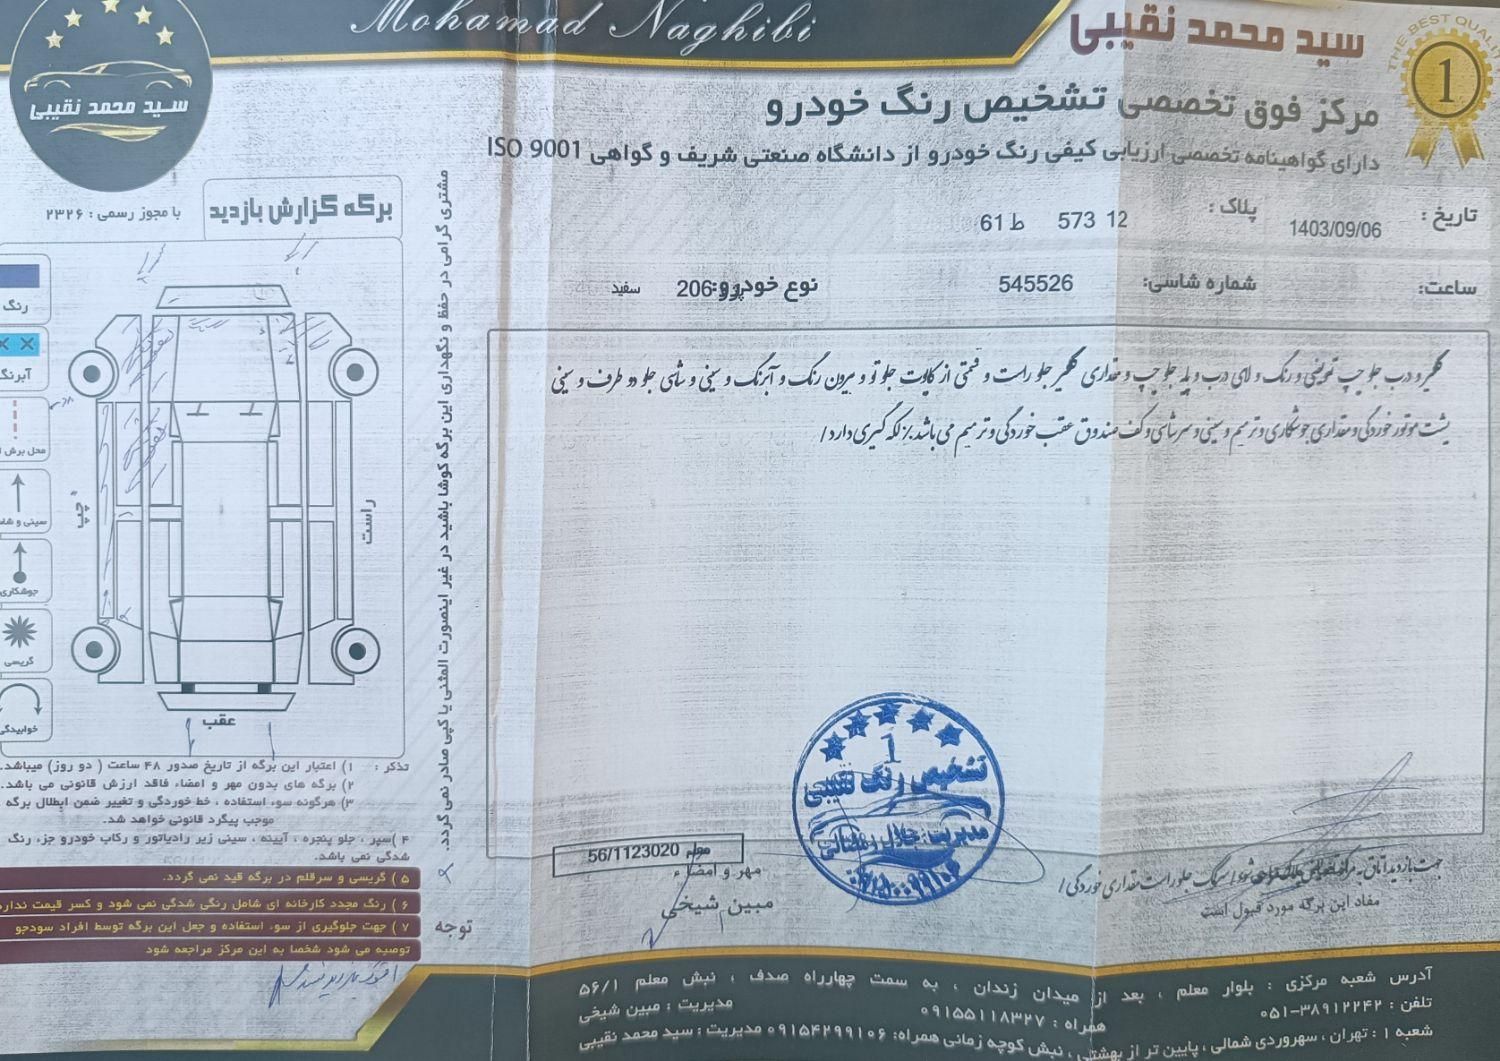 Mohamad Naghibi
سید محمد نقیبی
THE BEST QUALITY
1
سید محمد نقیبی
مرکز فوق تخصصی تشخیص رنگ خودرو
دارای گواهینامه تخصصی ارزیابی کیفی رنگ خودرو از دانشگاه صنعتی شریف و گواهی ISO 9001
تاریخ : 1403/09/06
پلاک : 12 573 ط 61
ساعت:
شماره شاسی: 545526
نوع خودرو: پژو 206 سفید
گلگیر و درب جلو چپ تعویضی و رنگ و لای درب و پله جلو چپ و مقداری گلگیر جلو راست و قسمتی از کاپوت جلو تو و بیرون رنگ و آبرنگ و سینی و شاسی جلو دو طرف و سینی
پشت موتور خوردگی و مقداری جوشکاری و ترمیم و سینی و سرشاسی و کف صندوق عقب خوردگی و ترمیم می باشد٪ لکه گیری دارد /
برگه گزارش بازدید
با مجوز رسمی : ۲۳۲۶
رنگ
آبرنگ
محل برش
سینی و شاسی
جوشکاری
گریسی
خوابیدگی
چپ
راست
عقب
مشتری گرامی در حفظ و نگهداری این برگه کوشا باشید در غیر اینصورت المثنی یا کپی صادر نمی گردد.
تذکر : ۱) اعتبار این برگه از تاریخ صدور ۴۸ ساعت ( دو روز) میباشد.
۲) برگه های بدون مهر و امضاء فاقد ارزش قانونی می باشد.
۳) هرگونه سوء استفاده ، خط خوردگی و تغییر ضمن ابطال برگه
موجب پیگرد قانونی خواهد شد.
۴ )سپر ، جلو پنجره ، آیینه ، سینی زیر رادیاتور و رکاب خودرو جزء رنگ
شدگی نمی باشد.
۵ ) گریسی و سرقلم در برگه قید نمی گردد.
۶ ) رنگ مجدد کارخانه ای شامل رنگی شدگی نمی شود و کسر قیمت ندارد
۷ ) جهت جلوگیری از سوء استفاده و جعل این برگه توسط افراد سودجو
توصیه می شود شخصا به این مرکز مراجعه شود
توجه
1
تشخیص رنگ نقیبی
معلم 56/1123020
مهر و امضاء
مبین شیخی
سرسگک جلو راست مقداری خوردگی /
مفاد این برگه مورد قبول است
آدرس شعبه مرکزی : بلوار معلم ، بعد از میدان زندان ، به سمت چهارراه صدف ، نبش معلم ۵۶/۱
تلفن : ۳۸۹۱۲۲۴۲-۰۵۱ همراه : ۰۹۱۵۵۱۱۸۳۲۷ مدیریت : مبین شیخی
شعبه ۱ : تهران ، سهروردی شمالی ، پایین تر از بهشتی ، نبش کوچه زمانی همراه: ۰۹۱۵۴۲۹۹۱۰۶ مدیریت : سید محمد نقیبی